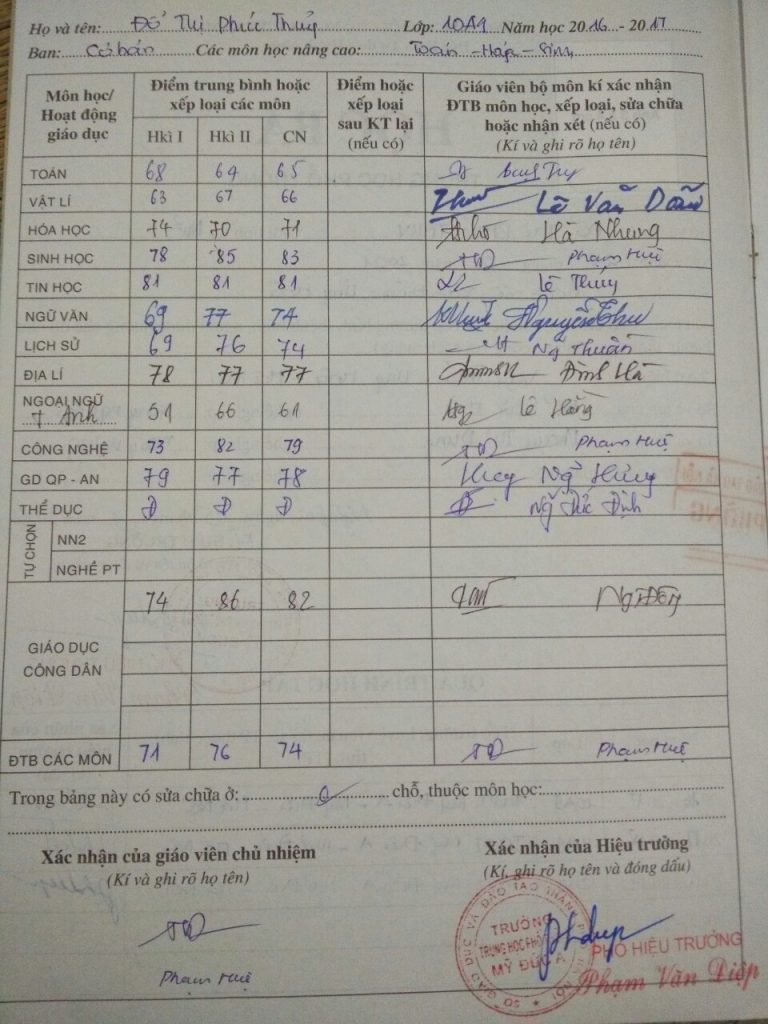 Họ và tên: Đỗ Thị Phúc Thuỷ Lớp: 10A1 Năm học 2016 - 2017
Ban: Cơ bản Các môn học nâng cao: Toán - Hóa - Sinh
Môn học/ Hoạt động giáo dục
Điểm trung bình hoặc xếp loại các môn
Hkì I Hkì II CN
Điểm hoặc xếp loại sau KT lại (nếu có)
Giáo viên bộ môn kí xác nhận
ĐTB môn học, xếp loại, sửa chữa
hoặc nhận xét (nếu có)
(Kí và ghi rõ họ tên)
TOÁN 68 64 65
VẬT LÍ 63 67 66 Lê Văn Doãn
HÓA HỌC 74 70 71 Hà Nhung
SINH HỌC 78 85 83 Phạm Huệ
TIN HỌC 81 81 81 Lê Thúy
NGỮ VĂN 69 77 74 Nguyễn Thu
LỊCH SỬ 69 76 74 Ng Thuần
ĐỊA LÍ 78 77 77 Đinh Hà
NGOẠI NGỮ
T Anh 51 66 61 Lê Hằng
CÔNG NGHỆ 73 82 79 Phạm Huệ
GD QP - AN 79 77 78 Ng Hùng
THỂ DỤC Đ Đ Đ Ng Đức Định
TỰ CHỌN
NN2
NGHỀ PT
74 86 82
GIÁO DỤC
CÔNG DÂN
ĐTB CÁC MÔN 71 76 74 Phạm Huệ
Trong bảng này có sửa chữa ở: 0 chỗ, thuộc môn học:
Xác nhận của giáo viên chủ nhiệm
(Kí và ghi rõ họ tên)
Phạm Huệ
Xác nhận của Hiệu trưởng
(Kí, ghi rõ họ tên và đóng dấu)
SỞ GIÁO DỤC VÀ ĐÀO TẠO THÀNH PHỐ HÀ NỘI
TRƯỜNG
TRUNG HỌC PHỔ
MỸ ĐỨC A
PHÓ HIỆU TRƯỞNG
Phạm Văn Diệp